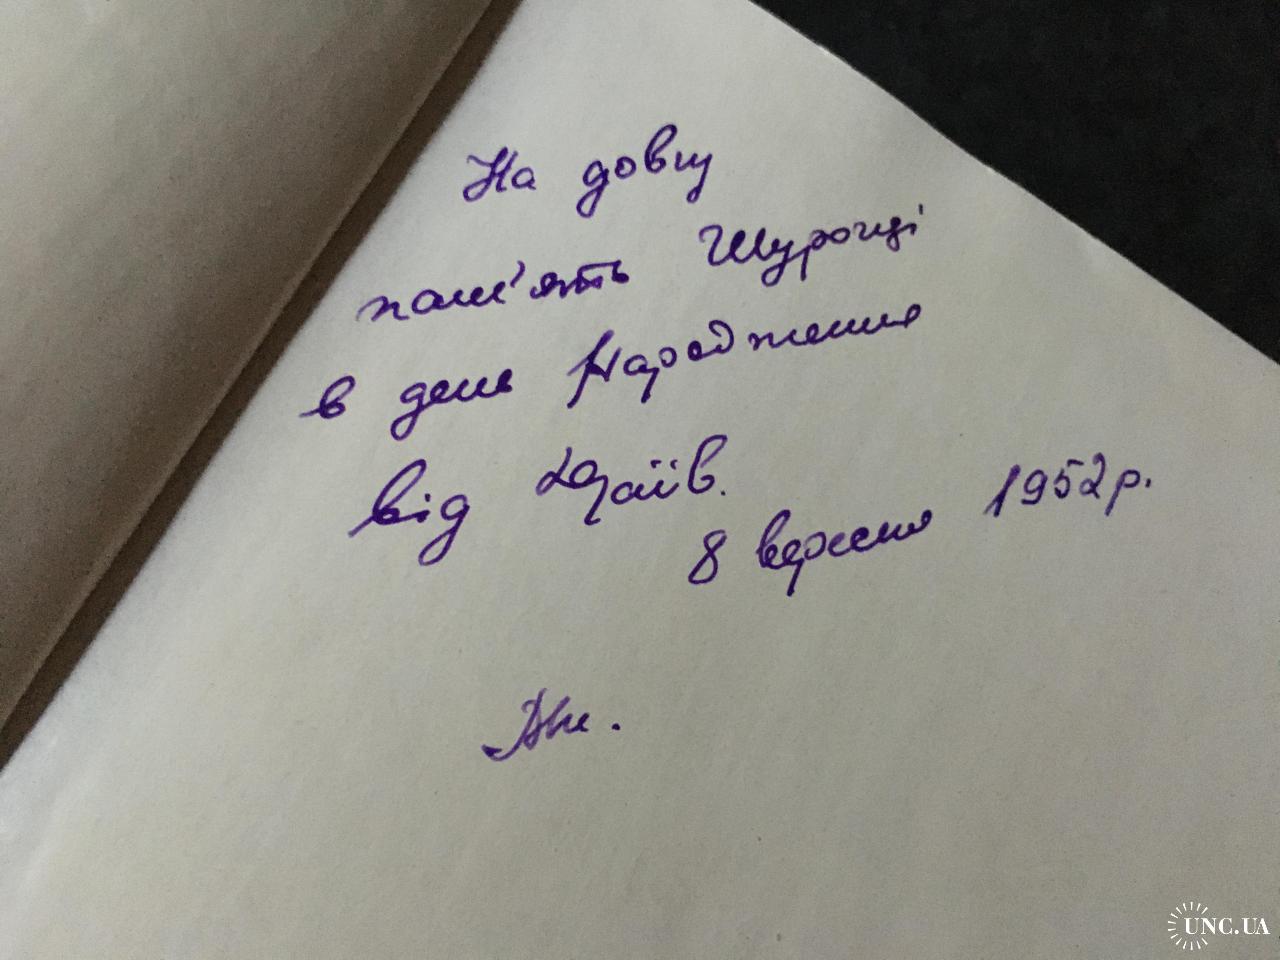 На довгу
пам'ять Шурочці
в день Народження
від
8 вересня 1952 р.
UNC.UA